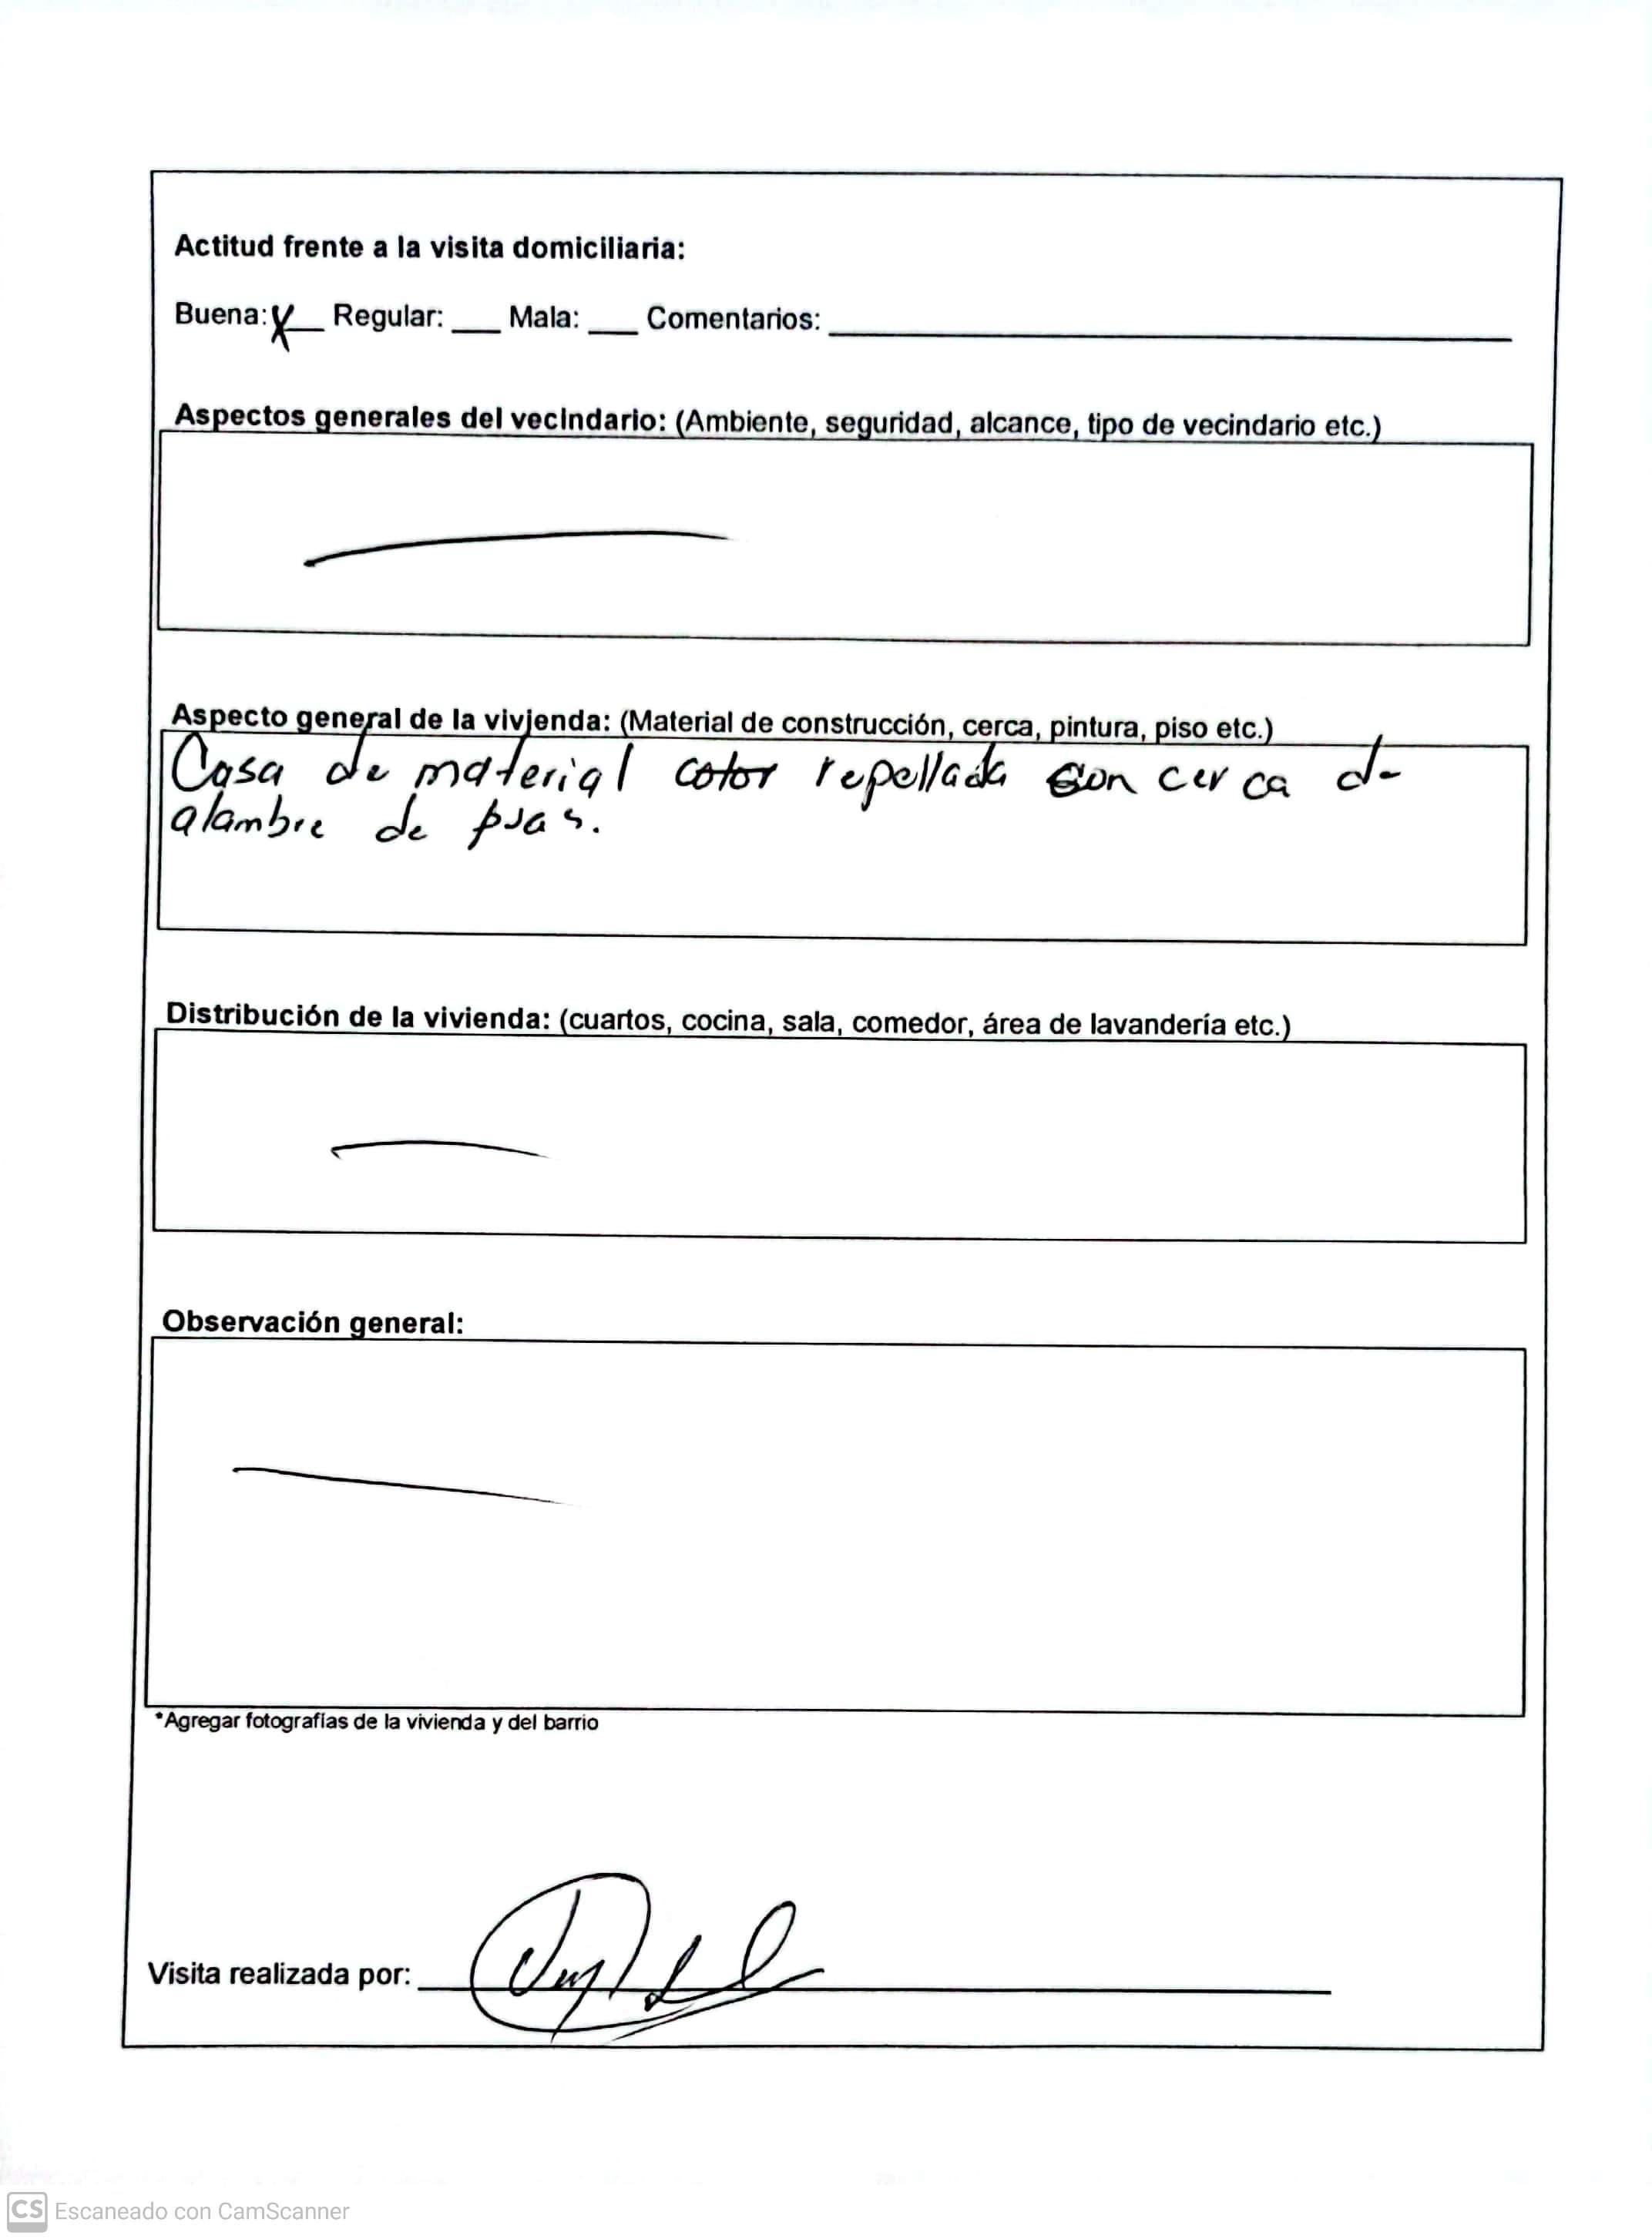 Actitud frente a la visita domiciliaria:
Buena: X Regular: ___ Mala: ___ Comentarios: ___
Aspectos generales del vecindario: (Ambiente, seguridad, alcance, tipo de vecindario etc.)
Aspecto general de la vivienda: (Material de construcción, cerca, pintura, piso etc.)
Casa de material color repellada con cerca de
alambre de puas.
Distribución de la vivienda: (cuartos, cocina, sala, comedor, área de lavandería etc.)
Observación general:
*Agregar fotografías de la vivienda y del barrio
Visita realizada por:
CS Escaneado con CamScanner